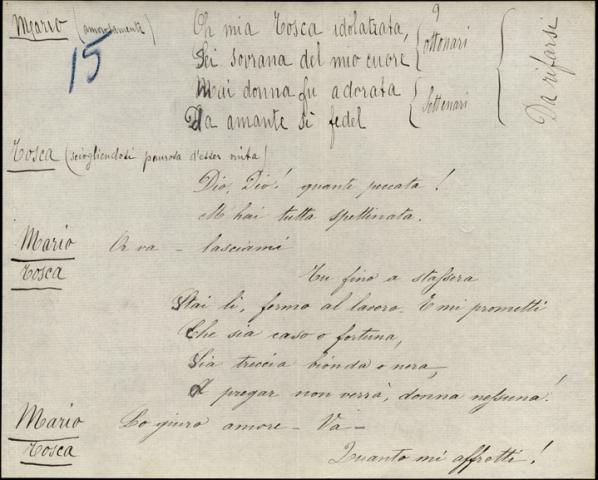 Mario (amorosamente) Oh mia Tosca idolatrata,
15
Sei sovrana del mio cuore
9 ottonari
Mai donna fu adorata
Da amante sì fedel
Settenari
Da rifarsi
Tosca (sciogliendosi paurosa d'esser vista)
Dio, Dio! quante peccata!
M'hai tutta spettinata.
Mario Or va - lasciami
Tosca Tu fino a stassera
Stai lì, fermo al lavoro. E mi prometti
Che sia caso o fortuna,
Sia treccia bionda o nera,
A pregar non verrà, donna nessuna!
Mario Lo giuro amore - Va -
Tosca Quanto mi affretti!